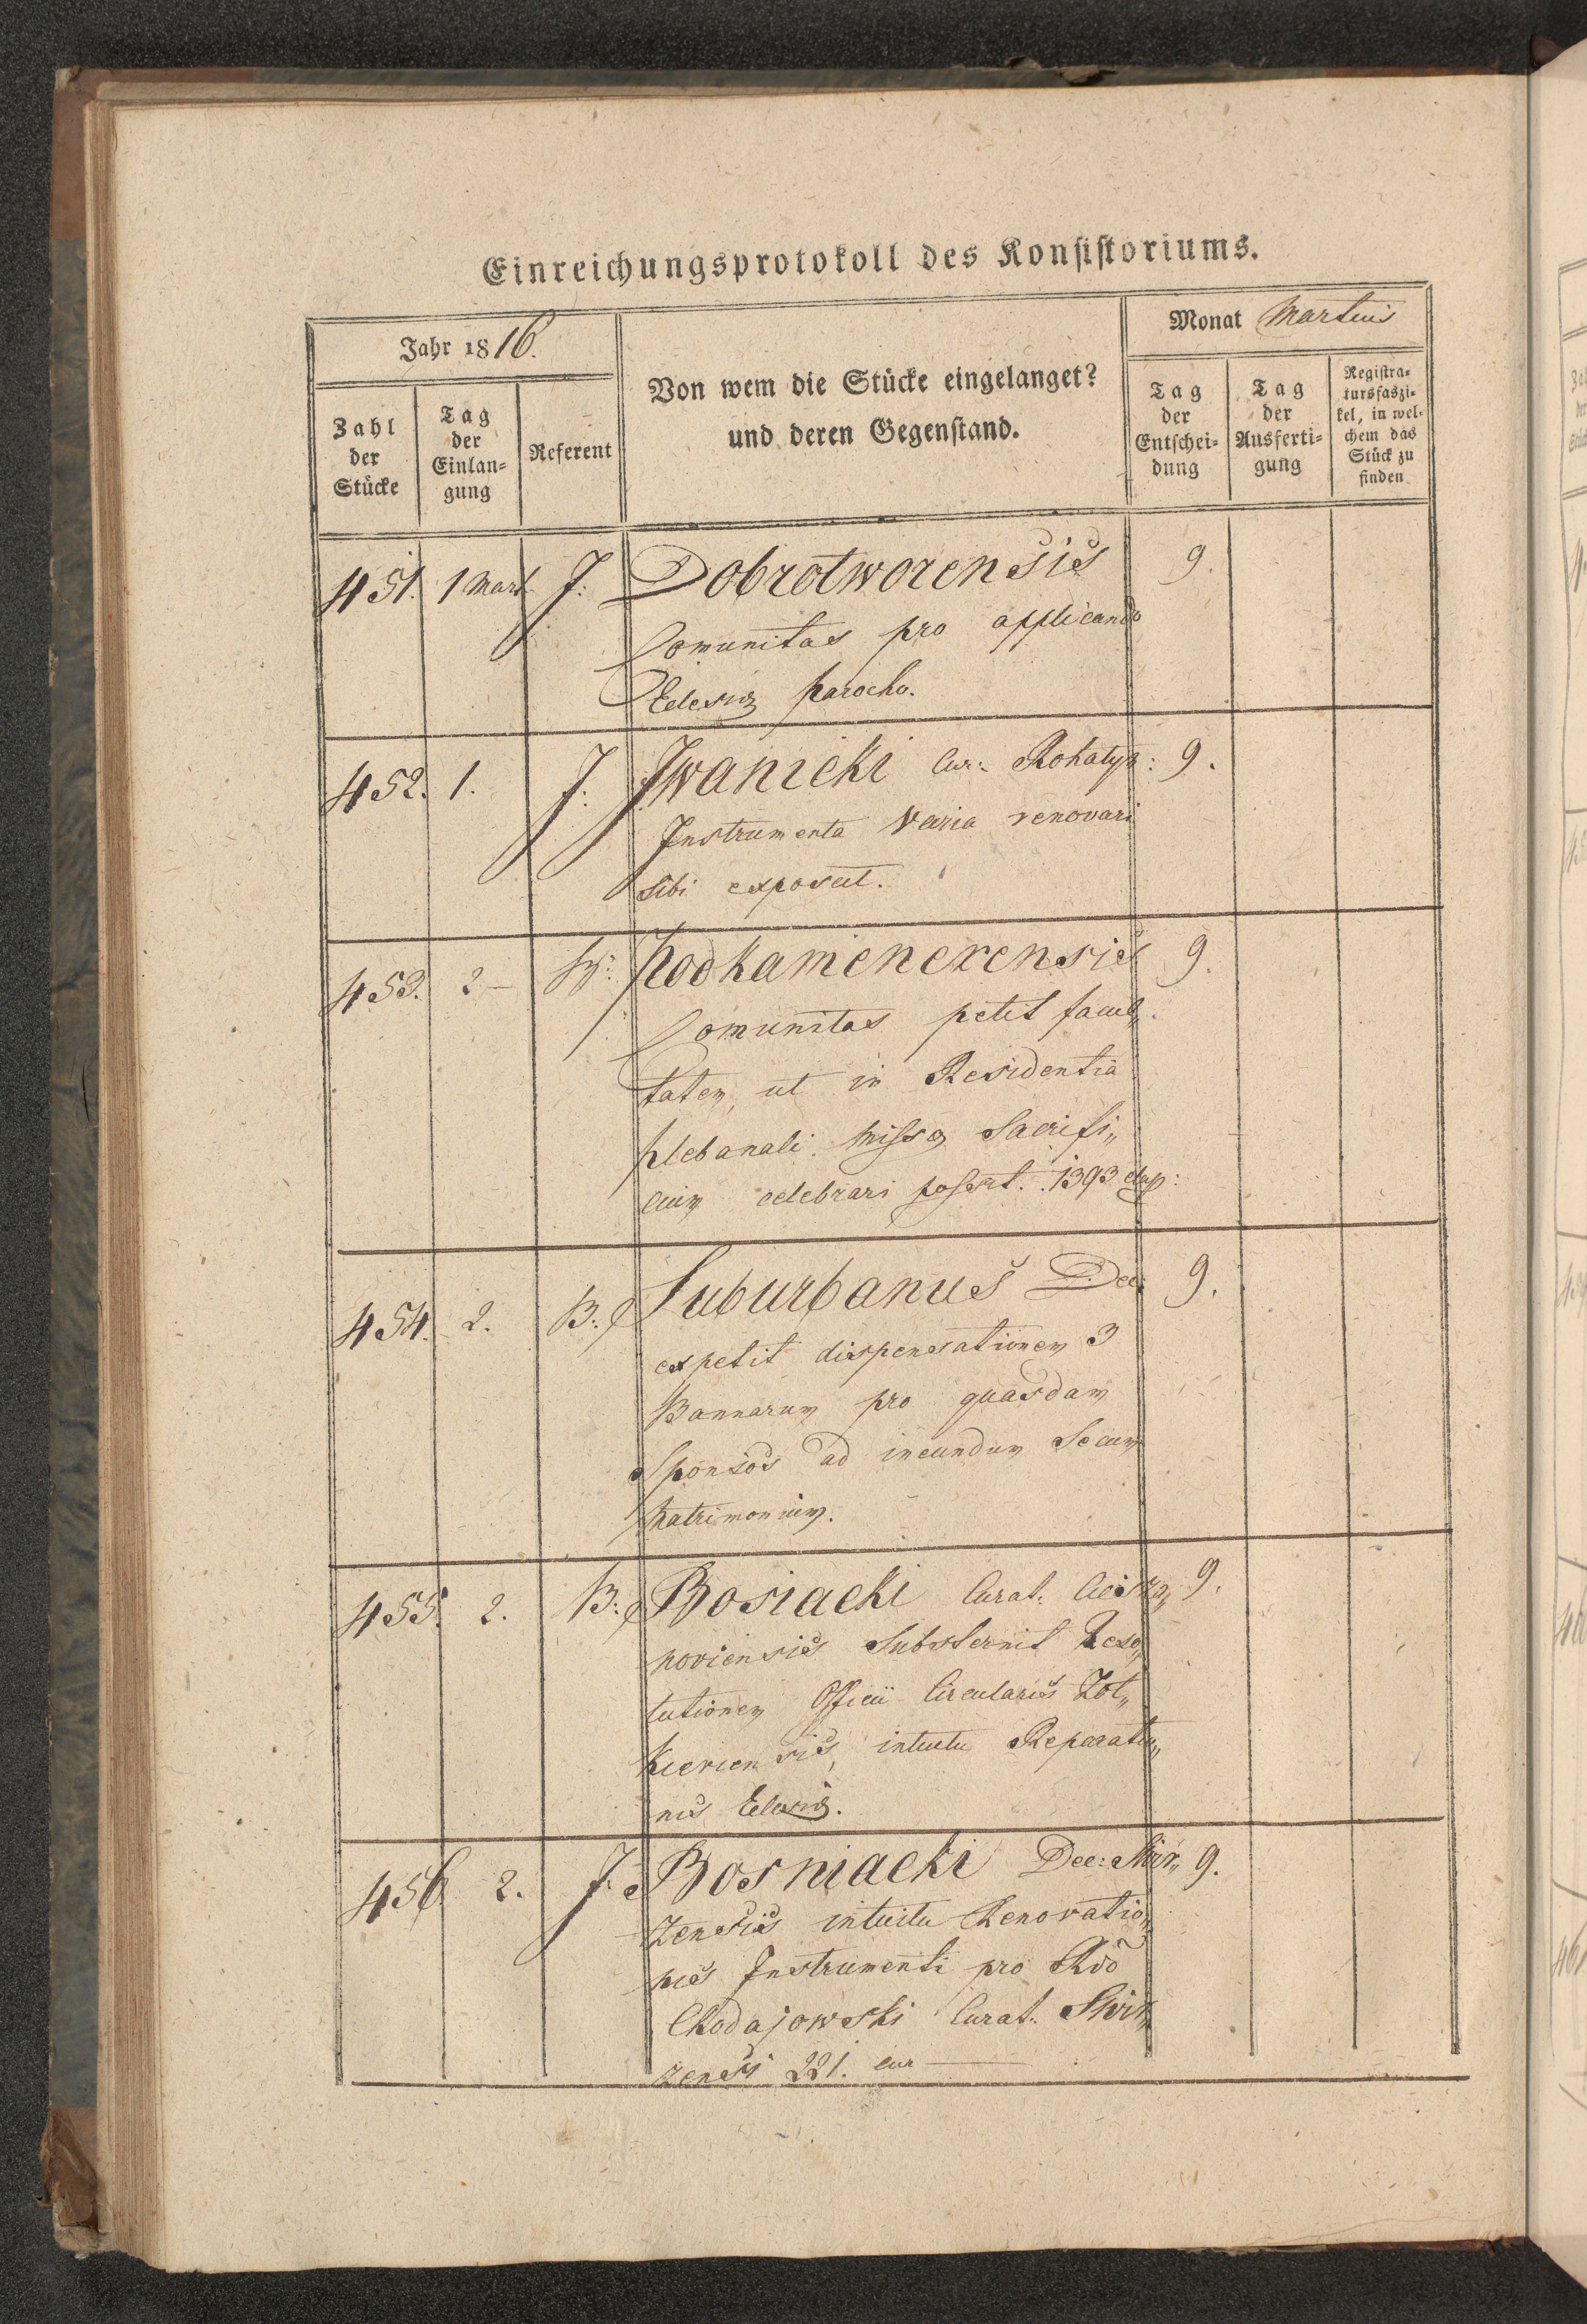 Einreichungsprotokoll des Konsistoriums.
Jahr 1816.
Von wem die Stücke eingelanget?
und deren Gegenstand.
Monat Martius
Zahl der Stücke
Tag der Einlan-gung
Referent
Tag der Entschei-dung
Tag der Ausferti-gung
Registra-tursfaszi-kel, in wel-chem das Stück zu finden
451. 1 Mart. J: Dobrotworensis 9.
Comunitas pro applicando
Eclesiæ parocho.
452. 1. J: Iwanicki Cur: Rohatyn: 9.
Instrumenta varia renovari
sibi exposcit.
453. 2 — W: Podkamenecensis 9.
Comunitas petit facul„
tatem, ut in Residentia
plebanali missæ Sacrifi„
cium celebrari posset. 1393
454. 2. B. Suburbanus Dec: 9.
expetit dispensationem 3
Bannarum pro quasdam
Sponsos ad ineundum Secum
Matrimonium.
455. 2. B. Bosiacki Curat. 9.
noviensis Substernit Reso„
lutionem Officii Circularis Zol„
kieviensis, intuitu Reparatio„
nis Eclesiæ.
456. 2. J: Bosniacki Dec: Swir„ 9.
zensis intuitu Renovatio„
nis Instrumenti pro Rdō
Chodajowski Curat. Swir„
zensi 221. cur